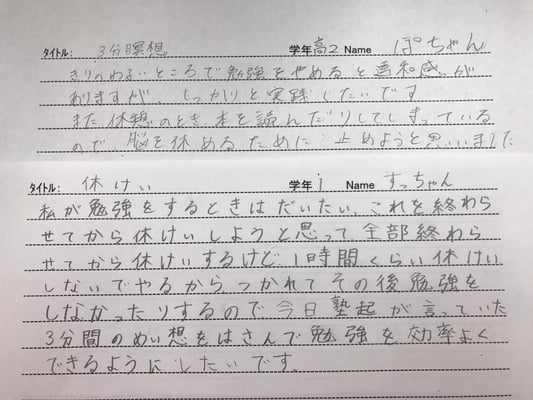 タイトル: 3分瞑想。 学年 高2 Name ぽちゃん
きりのわるいところで勉強をやめると違和感が
ありますが、しっかりと実践したいです
また休憩のとき、本を読んだりしてしまっている
ので、脳を休めるために止めようと思いました
タイトル: 休けい 学年 1 Name すっちゃん
私が勉強をするときはだいたい、これを終わら
せてから休けいしようと思って全部終わら
せてから休けいするけど、1時間くらい休けい
しないでやるからつかれてその後勉強を
しなかったりするので今日塾起が言っていた
3分間のめい想をはさんで勉強を効率よく
できるようにしたいです。